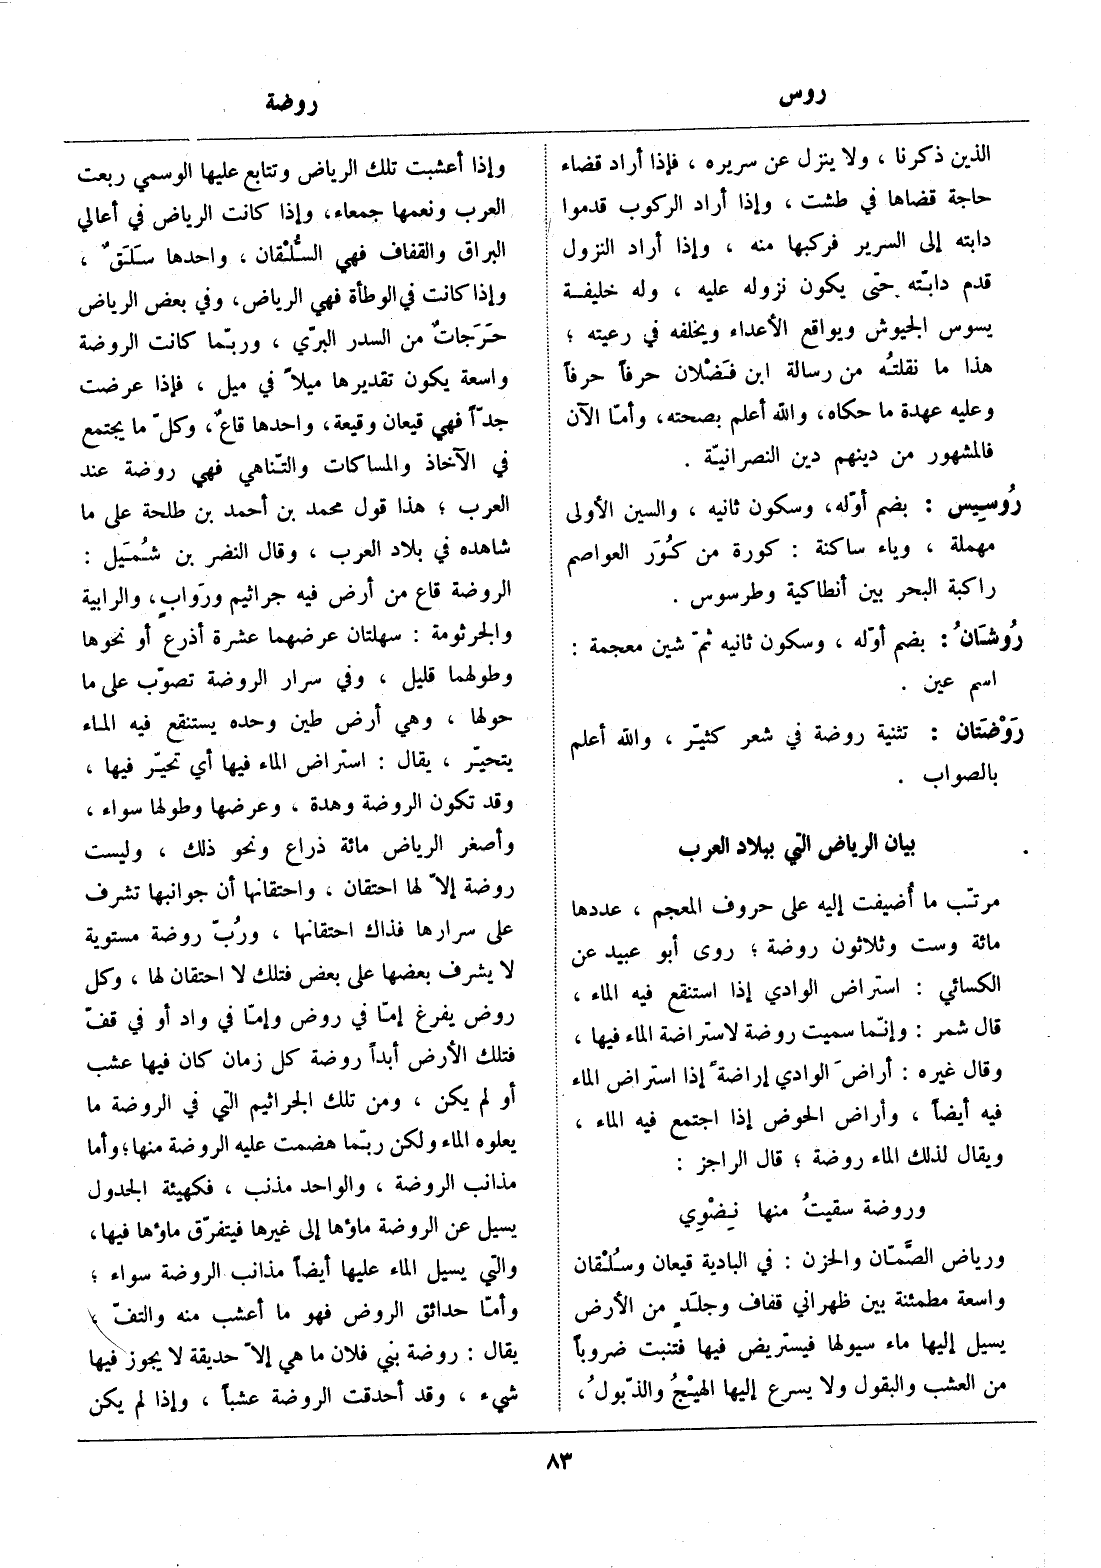 روس
روضة
الذين ذكرنا ، ولا ينزل عن سريره ، فإذا أراد قضاء
حاجة قضاها في طشت ، وإذا أراد الركوب قدموا
دابته إلى السرير فركبها منه ، وإذا أراد النزول
قدم دابّته حتى يكون نزوله عليه ، وله خليفة
يسوس الجيوش ويواقع الأعداء ويخلفه في رعيته ؛
هذا ما نقلتُه من رسالة ابن فَضْلان حرفاً حرفاً
وعليه عهدة ما حكاه، والله أعلم بصحته، وأمّا الآن
فالمشهور من دينهم دين النصرانيّة .
رُوسِيس : بضم أوّله، وسكون ثانيه ، والسين الأولى
مهملة ، وياء ساكنة : كورة من كُوَر العواصم
راكبة البحر بين أنطاكية وطرسوس .
رُوشَانُ : بضم أوّله ، وسكون ثانيه ثمّ شين معجمة :
اسم عين .
رَوْضَتَان : تثنية روضة في شعر كثيّر ، والله أعلم
بالصواب .
بيان الرياض التي ببلاد العرب
مرتّب ما أُضيفت إليه على حروف المعجم ، عددها
مائة وست وثلاثون روضة ؛ روى أبو عبيد عن
الكسائي : استراض الوادي إذا استنقع فيه الماء ،
قال شمر : وإنّما سميت روضة لاستراضة الماء فيها ،
وقال غيره : أراضَ الوادي إراضةً إذا استراض الماء
فيه أيضاً ، وأراض الحوض إذا اجتمع فيه الماء ،
ويقال لذلك الماء روضة ؛ قال الراجز :
وروضة سقيتُ منها نِضْوِي
ورياض الصَّمّان والحزن : في البادية قيعان وسُلْقان
واسعة مطمئنة بين ظهراني قفاف وجلَدٍ من الأرض
يسيل إليها ماء سيولها فيستريض فيها فتنبت ضروباً
من العشب والبقول ولا يسرع إليها الهيْجُ والذّبولُ،
وإذا أعشبت تلك الرياض وتتابع عليها الوسمي ربعت
العرب ونعمها جمعاء، وإذا كانت الرياض في أعالي
البراق والقفاف فهي السُّلْقان ، واحدها سَلَقٌ ،
وإذا كانت في الوطأة فهي الرياض، وفي بعض الرياض
حَرَجاتٌ من السدر البرّي ، وربّما كانت الروضة
واسعة يكون تقديرها ميلاً في ميل ، فإذا عرضت
جدّاً فهي قيعان وقيعة، واحدها قاعٌ، وكلّ ما يجتمع
في الآخاذ والمساكات والتّناهي فهي روضة عند
العرب ؛ هذا قول محمد بن أحمد بن طلحة على ما
شاهده في بلاد العرب ، وقال النضر بن شُمَيل :
الروضة قاع من أرض فيه جراثيم ورَوابٍ، والرابية
والجرثومة : سهلتان عرضهما عشرة أذرع أو نحوها
وطولهما قليل ، وفي سرار الروضة تصوّب على ما
حولها ، وهي أرض طين وحده يستنقع فيه الماء
يتحيّر ، يقال : استراض الماء فيها أي تحيّر فيها ،
وقد تكون الروضة وهدة ، وعرضها وطولها سواء ،
وأصغر الرياض مائة ذراع ونحو ذلك ، وليست
روضة إلاّ لها احتقان ، واحتقانها أن جوانبها تشرف
على سرارها فذاك احتقانها ، ورُبّ روضة مستوية
لا يشرف بعضها على بعض فتلك لا احتقان لها ، وكل
روض يفرغ إمّا في روض وإمّا في واد أو في قفّ
فتلك الأرض أبداً روضة كل زمان كان فيها عشب
أو لم يكن ، ومن تلك الجراثيم التي في الروضة ما
يعلوه الماء ولكن ربّما هضمت عليه الروضة منها؛ وأما
مذانب الروضة ، والواحد مذنب ، فكهيئة الجدول
يسيل عن الروضة ماؤها إلى غيرها فيتفرّق ماؤها فيها،
والتي يسيل الماء عليها أيضاً مذانب الروضة سواء ؛
وأمّا حدائق الروض فهو ما أعشب منه والتفّ ،
يقال : روضة بني فلان ما هي إلاّ حديقة لا يجوز فيها
شيء ، وقد أحدقت الروضة عشباً ، وإذا لم يكن
٨٣